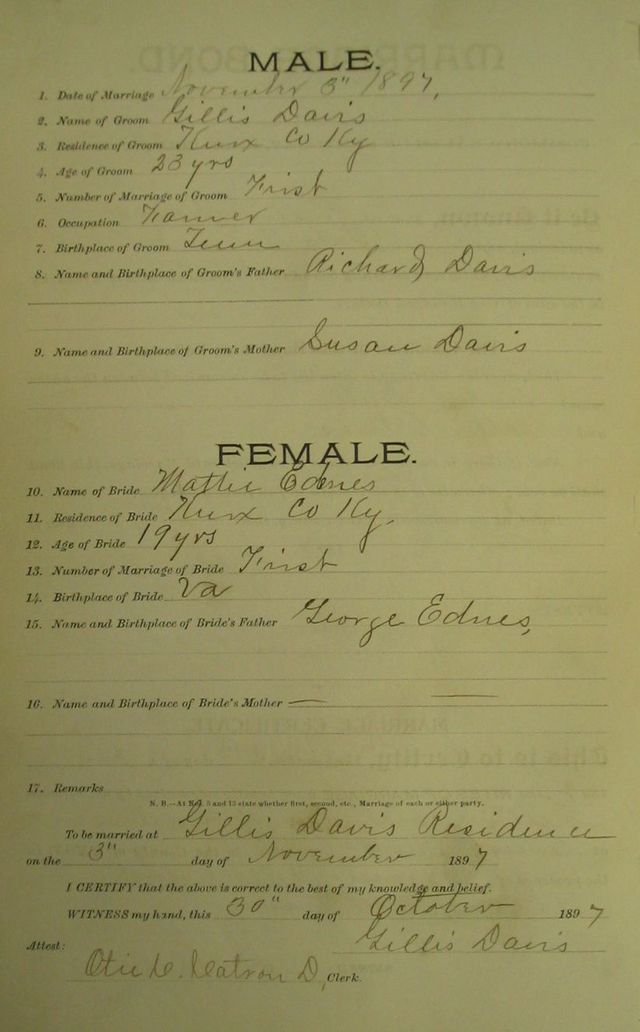 MALE.
1. Date of Marriage November 3" 1897,
2. Name of Groom Gillis Davis
3. Residence of Groom Knox Co Ky
4. Age of Groom 23 yrs
5. Number of Marriage of Groom First
6. Occupation Farmer
7. Birthplace of Groom Tenn
8. Name and Birthplace of Groom's Father Richard Davis
9. Name and Birthplace of Groom's Mother Susan Davis
FEMALE.
10. Name of Bride Mattie Ednes
11. Residence of Bride Knox Co Ky,
12. Age of Bride 19 yrs
13. Number of Marriage of Bride First
14. Birthplace of Bride Va
15. Name and Birthplace of Bride's Father George Ednes,
16. Name and Birthplace of Bride's Mother — —
17. Remarks
N. B.—At Nos. 5 and 13 state whether first, second, etc., Marriage of each or either party.
To be married at Gillis Davis Residence
on the 3" day of November 1897
I CERTIFY that the above is correct to the best of my knowledge and belief.
WITNESS my hand, this 30" day of October 1897
Gillis Davis
Attest:
D, Clerk.